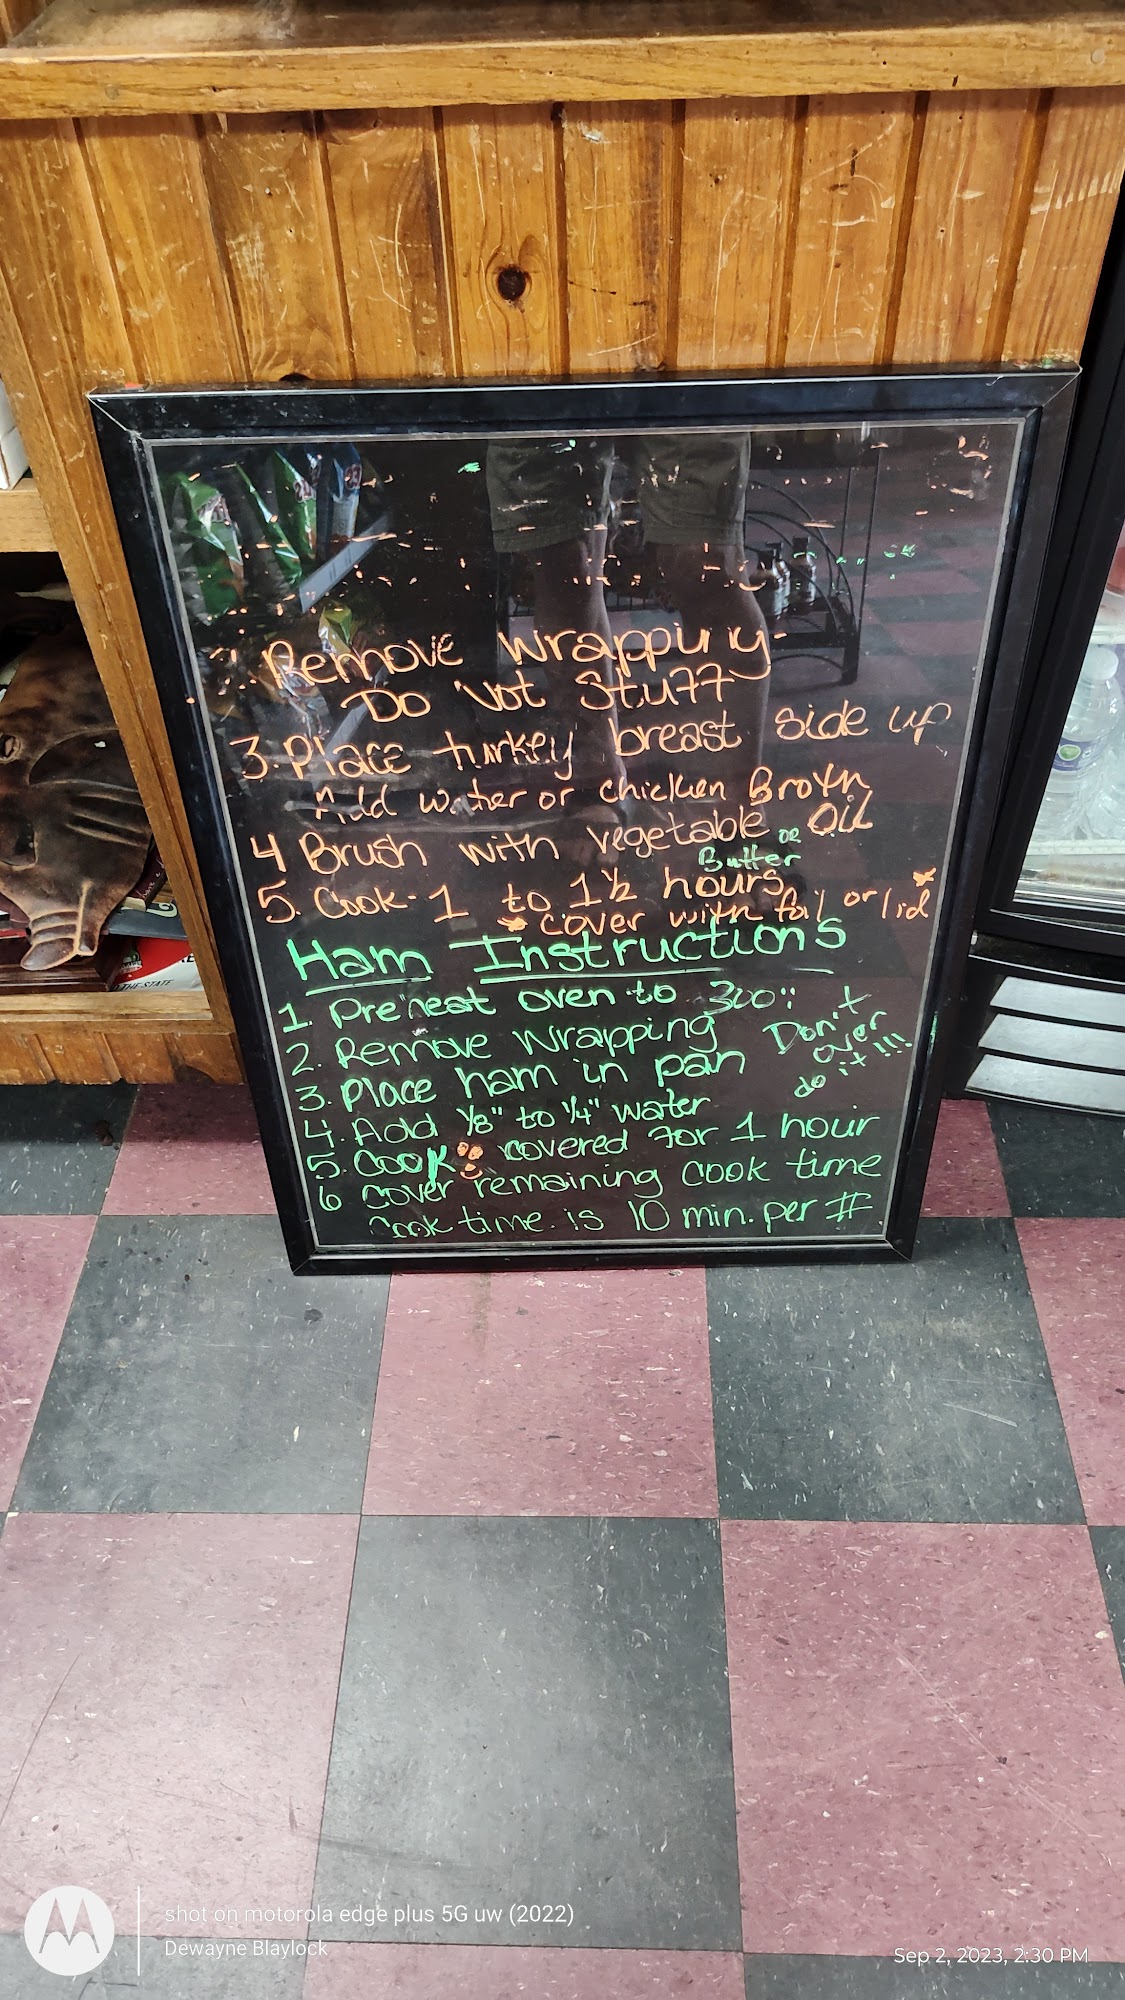 Remove wrapping-
Do Not Stuff
3. Place turkey breast side up
Add water or chicken Broth
4 Brush with vegetable OR Oil
Butter
5. Cook- 1 to 1½ hours
* cover with foil or lid *
Ham Instructions
1. Preheat oven to 300°
2. Remove wrapping
Don't
over
do it!!!
3. Place ham in pan
4. Add 1/8" to 1/4" water
5. Cook covered for 1 hour
6 Cover remaining cook time
Cook time is 10 min. per #
THE STATE
shot on motorola edge plus 5G uw (2022)
Dewayne Blaylock
Sep 2, 2023, 2:30 PM